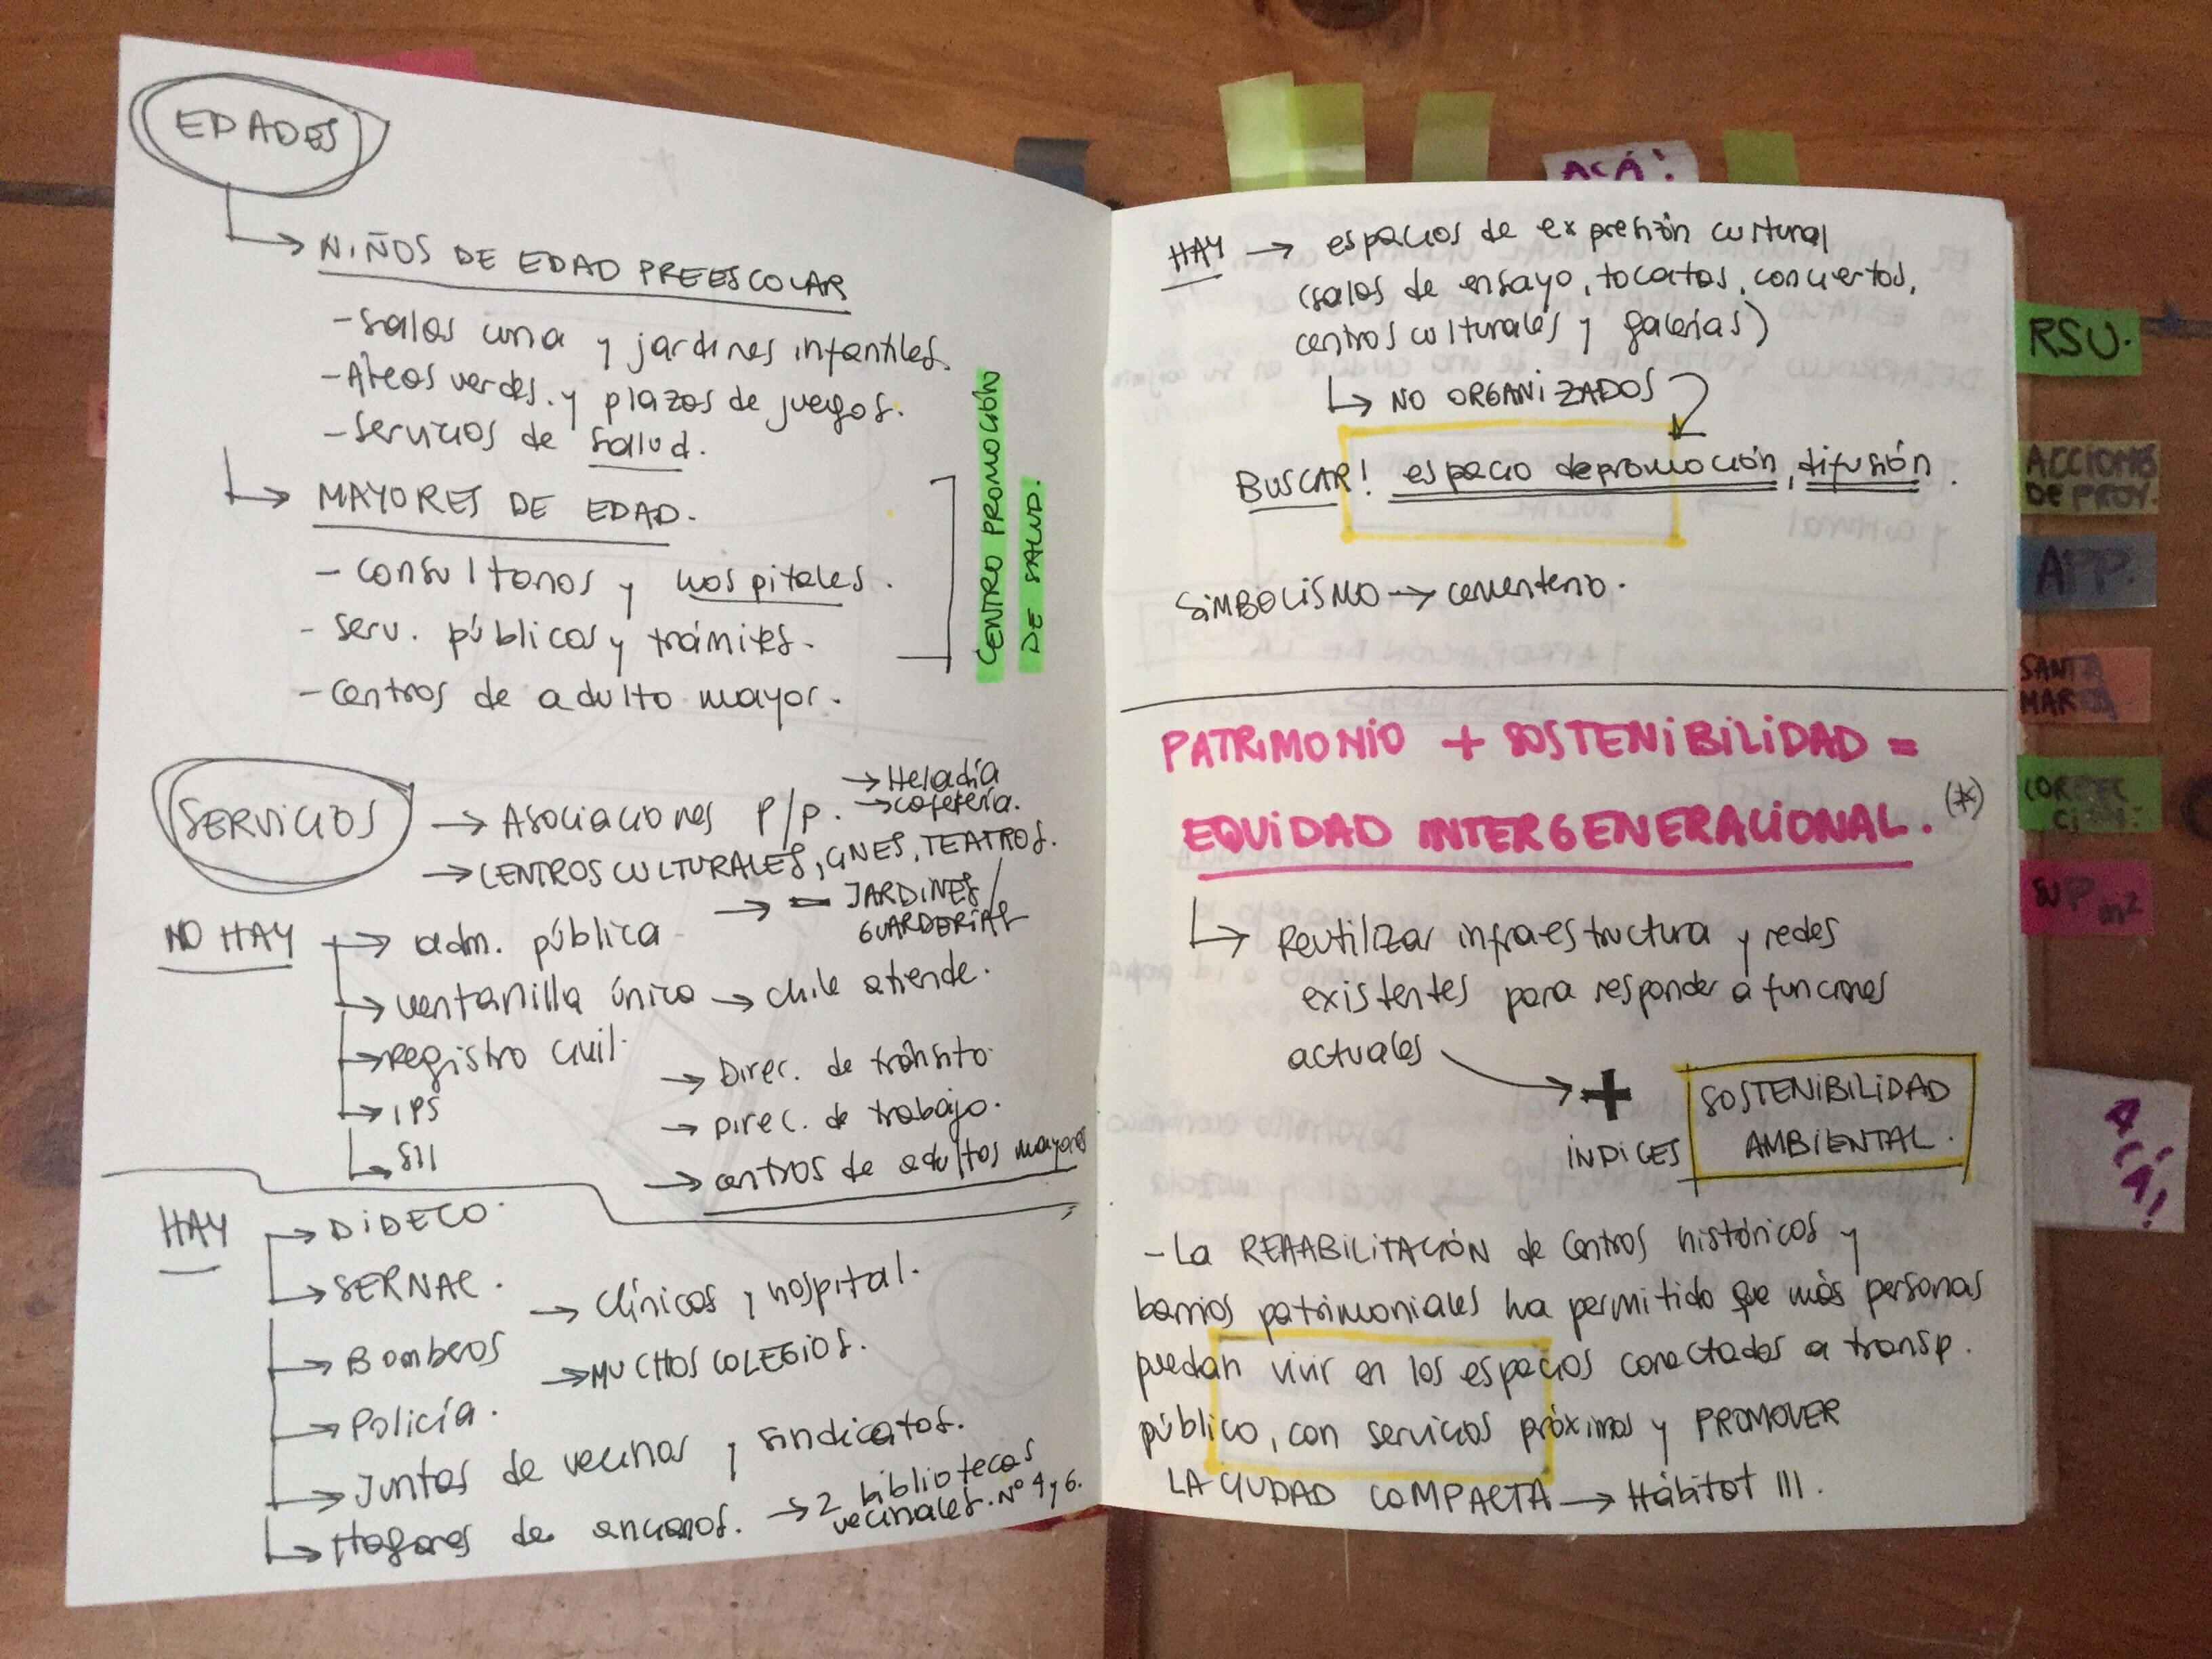 EDADES
NIÑOS DE EDAD PREESCOLAR
- Salas cuna y jardines infantiles.
- Áreas verdes. y plazas de juegos.
- Servicios de salud.
MAYORES DE EDAD.
- Consultorios y hospitales.
- Serv. públicos y trámites.
- Centros de adulto mayor.
CENTRO PROMOCIÓN
DE SALUD.
SERVICIOS → Asociaciones P/P. → Heladía
→ cafetería.
→ CENTROS CULTURALES, CINES, TEATROS.
→ JARDINES/
GUARDERÍAS
NO HAY → adm. pública
→ ventanilla única → chile atiende.
→ registro civil.
→ IPS
→ SII
→ Direc. de tránsito.
→ Direc. de trabajo.
→ centros de adultos mayores
HAY → DIDECO.
→ SERNAC.
→ Bomberos
→ Policía.
→ Clínicas y hospital.
→ MUCHOS COLEGIOS.
→ Juntas de vecinos y sindicatos.
→ Hogares de ancianos. → 2 bibliotecas
vecinales. Nº 4 y 6.
ACÁ!
HAY → espacios de expresión cultural
(salas de ensayo, tocatas, conciertos,
centros culturales y galerías)
NO ORGANIZADOS
BUSCAR! espacio de promoción, difusión.
SIMBOLISMO → cementerio.
PATRIMONIO + SOSTENIBILIDAD =
EQUIDAD INTERGENERACIONAL. (*)
Reutilizar infraestructura y redes
existentes para responder a funciones
actuales → +
ÍNDICES
SOSTENIBILIDAD
AMBIENTAL.
- La REHABILITACIÓN de Centros históricos y
barrios patrimoniales ha permitido que más personas
puedan vivir en los espacios conectados a transp.
público, con servicios próximos y PROMOVER
LA CIUDAD COMPACTA → Hábitat III.
RSU.
ACCIONES
DE PROY.
SANTA
MARTA
ACÁ!